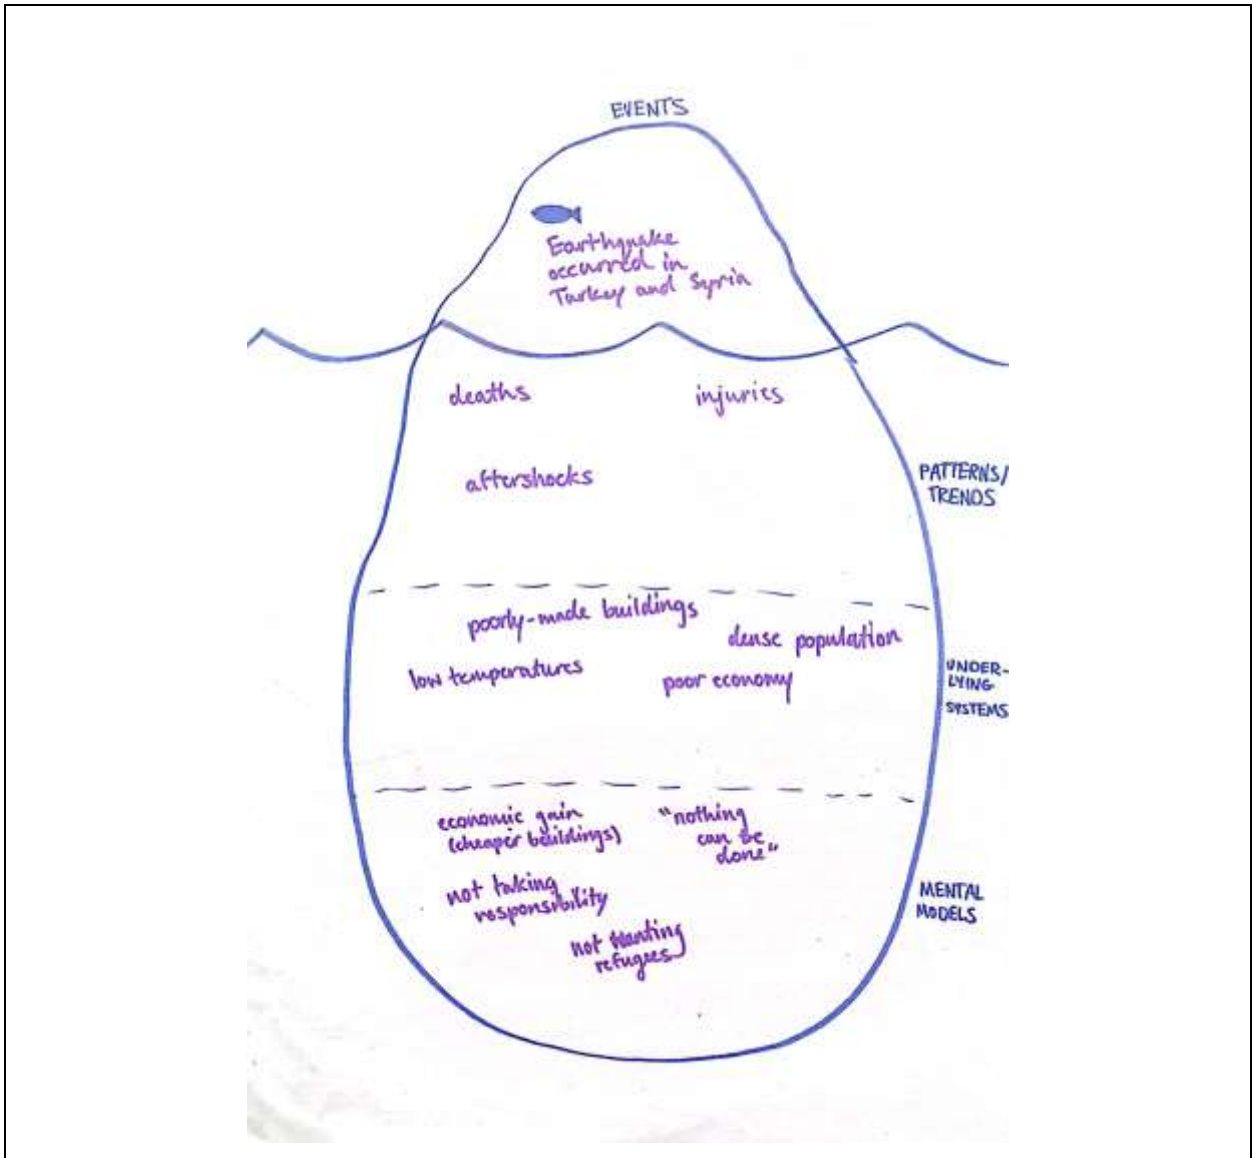 EVENTS
Earthquake
occurred in
Turkey and Syria
deaths
injuries
aftershocks
PATTERNS/
TRENDS
poorly-made buildings
dense population
low temperatures
poor economy
UNDER-
LYING
SYSTEMS
economic gain
(cheaper buildings)
"nothing
can be
done"
not taking
responsibility
not wanting
refugees
MENTAL
MODELS